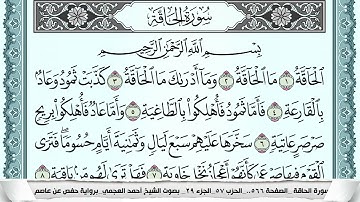 سُورَةُ الْحَاقَّةِ
بِسْمِ اللَّهِ الرَّحْمَٰنِ الرَّحِيمِ
الْحَاقَّةُ ١ مَا الْحَاقَّةُ ٢ وَمَا أَدْرَاكَ مَا الْحَاقَّةُ ٣ كَذَّبَتْ ثَمُودُ وَعَادٌ
بِالْقَارِعَةِ ٤ فَأَمَّا ثَمُودُ فَأُهْلِكُوا بِالطَّاغِيَةِ ٥ وَأَمَّا عَادٌ فَأُهْلِكُوا بِرِيحٍ
صَرْصَرٍ عَاتِيَةٍ ٦ سَخَّرَهَا عَلَيْهِمْ سَبْعَ لَيَالٍ وَثَمَانِيَةَ أَيَّامٍ حُسُومًا فَتَرَى
الْقَوْمَ فِيهَا صَرْعَىٰ كَأَنَّهُمْ أَعْجَازُ نَخْلٍ خَاوِيَةٍ ٧ فَهَلْ تَرَىٰ لَهُمْ مِنْ بَاقِيَةٍ ٨
سورة الحاقة _الصفحة ٥٦٦.. الحزب ٥٧ _الجزء ٢٩ _بصوت الشيخ أحمد العجمي _برواية حفص عن عاصم